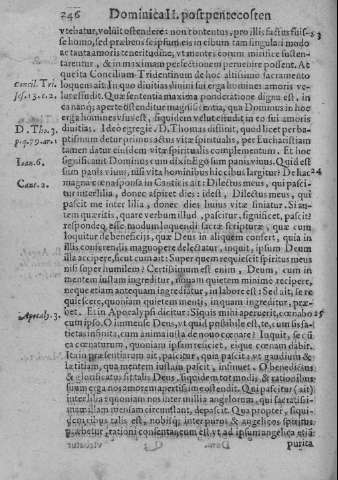 246 Dominica II. post pentecosten
vtebatur, voluit ostendere: non contentus, pro illis factus fuisse 23
se homo, sed præbens se ipsum eis in cibum tam singulari modo
ac tanta amoris teneritudine, vt mentes eorum mirifice susten-
tarentur, & in maximam perfectionem peruenire possent. At
que ita Concilium Tridentinum de hoc altissimo sacramento
Concil. Tri. loquens ait: In quo diuitias diuini sui erga homines amoris ve-
ses. 13. c. 2. lut effudit. Quæ sententia maxima ponderatione digna est, in
ea namq; aperte ostenditur magnificentia, qua Dominus in hoc
erga homines vsus est, siquidem velut effudit in eo sui amoris
D. Tho. 3. diuitias. Ideo egregie D. Thomas dissinit, quod licet per bap-
p. q. 79. ar. 1 tismum detur primus actus vitæ spiritualis, per Eucharistiam
tamen datur eiusdem vitæ spiritualis complementum. Et hoc
Ioan. 6. significauit Dominus cum dixit: Ego sum panis viuus. Quid est
sum panis viuus, nisi vita hominibus hic cibus largitur? De hac 24
Cant. 2. magna cœna sponsa in Canticis ait: Dilectus meus, qui pasci-
tur inter lilia, donec aspiret dies: idest, Dilectus meus, qui
pascit me inter lilia, donec dies huius vitæ finiatur. Si an-
tem quæritis, quare verbum illud, pascitur, significet, pascit?
respondeo, esse modum loquendi sacræ scripturæ, quæ cum
loquitur de beneficijs, quæ Deus in aliquem confert, quia in
illis conferendis magnopere delectatur, inquit, ipsum Deum
illa accipere, sicut cum ait: Super quem requiescet spiritus meus
nisi super humilem? Certissimum est enim, Deum, cum in
mentem iustam ingreditur, quam quietem minime recipere,
neque etiam antequam ingrediatur, in labore esse: Sed ait, se re
quiescere, quoniam quietem menti, inquam ingreditur, præ-
Apocaly. 3. bet. Et in Apocalypsi dicitur: Siquis mihi aperuerit, cœnabo 25
cum ipso. O immense Deus, vt quid possibile est, te, cum sis sa-
tietas infinita, cum anima iusta de nouo cœnare? Inquit, se cū
ea cœnaturum, quoniam ipsam reficiet, eique cœnam dabit.
Ita in præsentiarum ait, pascitur, quia pascit: vt gaudium &
lætitiam, qua mentem iustam pascit, insinuet. O benedictus
& glorificatus sit talis Deus, siquidem tot modis, & rationibus
suum erga nos amorem apertissime ostendit. Qui pascitur (ait)
inter lilia: quoniam nos inter millia angelorum, qui sacratissi-
mam illam mensam circunstant, depascit. Qua propter, siqui-
dem cibus talis est, nobisq; inter puros & angelicos spiritus
præbetur, rationi consentaneum est vt ad ipsum angelica etiā
purita